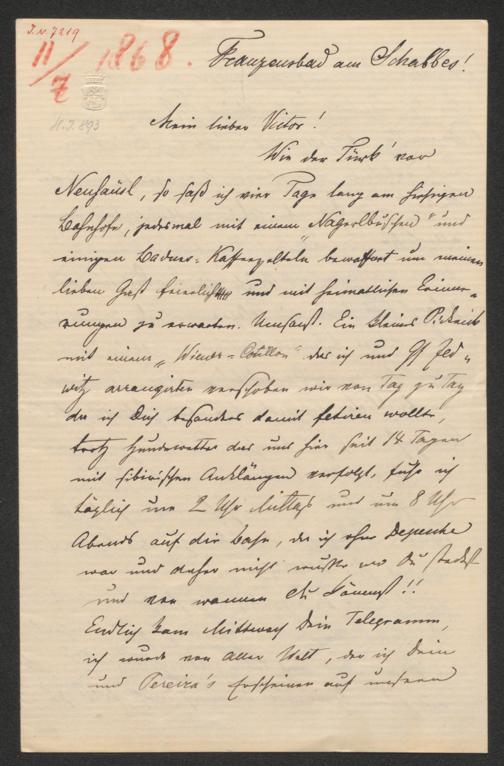 I.N. 7219
11/7 1868.
Franzensbad am Schabbes!
H.I. 893
Mein lieber Victor!
Wie der Türk' vor
Neuhäusl, so saß ich vier Tage lang am hiesigen
Bahnhofe, jedesmal mit einem "Nagerlbuschen" und
einigen Badner-Kaffeezelteln bewaffnet um meinen
lieben Gast feierlichst und mit heimatlichen Erinne-
rungen zu erwarten. Umsonst. Ein kleines Picknick
mit einem "Wiener-Cotillon" das ich und Gf Zed-
witz arrangirten verschoben wir von Tag zu Tag
da ich Dich besonders damit fetiren wollte,
trotz Hundewetter das uns hier seit 14 Tagen
mit sibirischen Anklängen verfolgt, fuhr ich
täglich um 2 Uhr Mittags und um 8 Uhr
Abends auf die Bahn, da ich ohne Depesche
war und daher nicht wußte wo Du steckst
und von wannen Du kömmst!!
Endlich kam Mittwoch Dein Telegramm,
ich wurde von aller Welt, der ich Dein
und Pereira's Erscheinen auf unserm